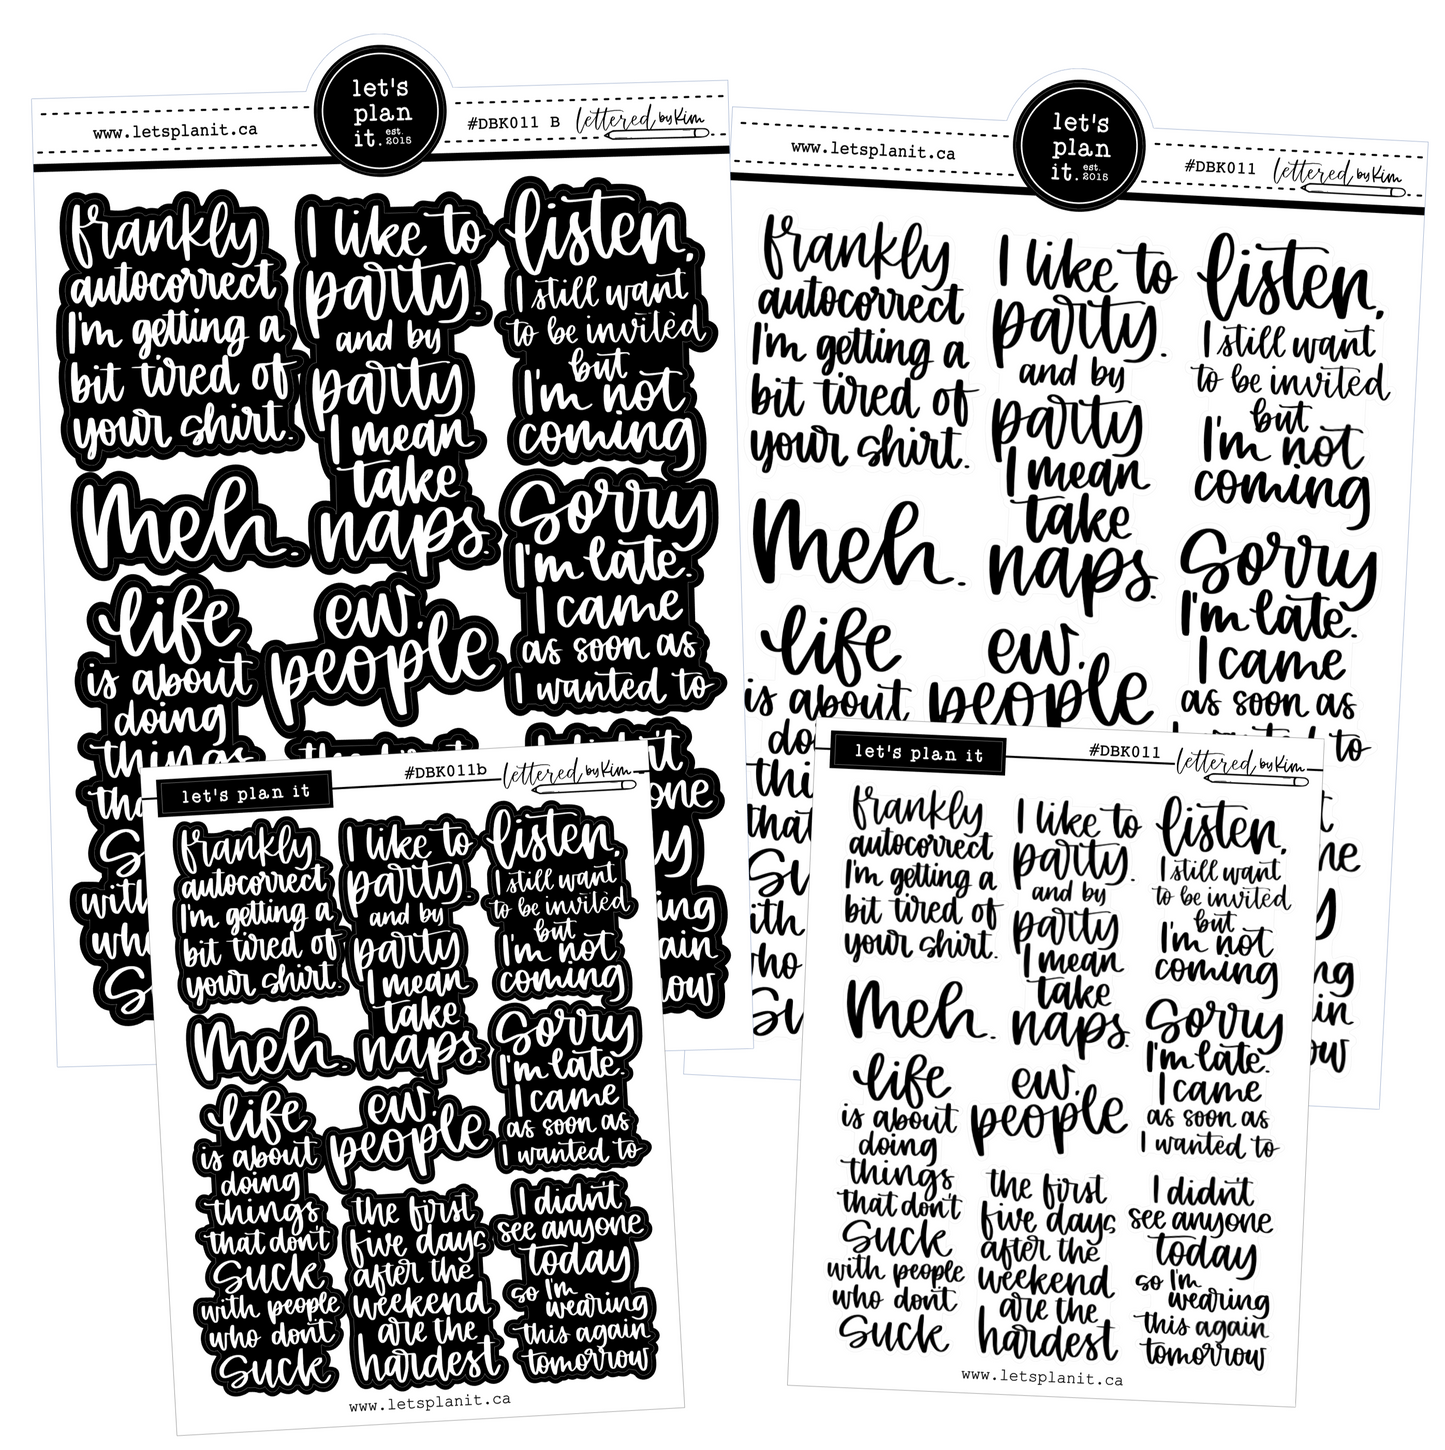 let's
plan
it. est. 2015
www.letsplanit.ca
#DBK011 B
lettered by Kim
frankly
autocorrect
I'm getting a
bit tired of
your shirt.
Meh.
life
is about
doing
things
I like to
party.
and by
party
I mean
take
naps.
ew.
people
the first
listen,
I still want
to be invited
but
I'm not
coming
Sorry
I'm late.
I came
as soon as
I wanted to
I didn't
let's
plan
it. est. 2015
www.letsplanit.ca
#DBK011
lettered by Kim
frankly
autocorrect
I'm getting a
bit tired of
your shirt.
Meh.
life
is about
I like to
party.
and by
party
I mean
take
naps.
ew.
people
listen,
I still want
to be invited
but
I'm not
coming
Sorry
I'm late.
I came
as soon as
I wanted to
let's plan it
#DBK011b
lettered by Kim
frankly
autocorrect
I'm getting a
bit tired of
your shirt.
Meh.
life
is about
doing
things
that don't
suck
with people
who don't
suck
I like to
party.
and by
party
I mean
take
naps.
ew.
people
the first
five days
after the
weekend
are the
hardest
listen,
I still want
to be invited
but
I'm not
coming
Sorry
I'm late.
I came
as soon as
I wanted to
I didn't
see anyone
today
so I'm
wearing
this again
tomorrow
www.letsplanit.ca
let's plan it
#DBK011
lettered by Kim
frankly
autocorrect
I'm getting a
bit tired of
your shirt.
Meh.
life
is about
doing
things
that don't
suck
with people
who don't
suck
I like to
party.
and by
party
I mean
take
naps.
ew.
people
the first
five days
after the
weekend
are the
hardest
listen,
I still want
to be invited
but
I'm not
coming
Sorry
I'm late.
I came
as soon as
I wanted to
I didn't
see anyone
today
so I'm
wearing
this again
tomorrow
www.letsplanit.ca